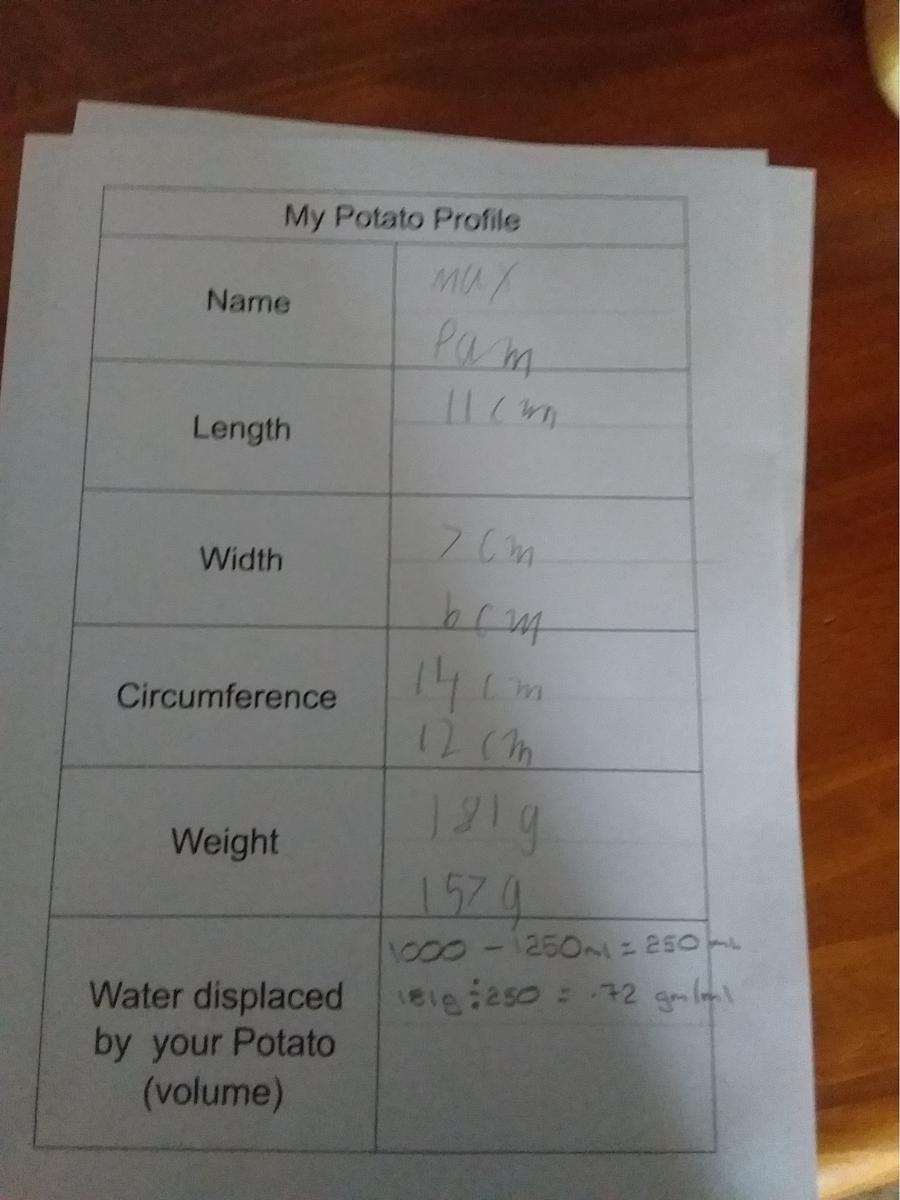 My Potato Profile
Name
Max
Pam
Length
11 cm
Width
7 cm
6 cm
Circumference
14 cm
12 cm
Weight
181 g
157 g
Water displaced
by your Potato
(volume)
1000 - 1250ml = 250 ml
181g ÷ 250 = .72 gm/ml